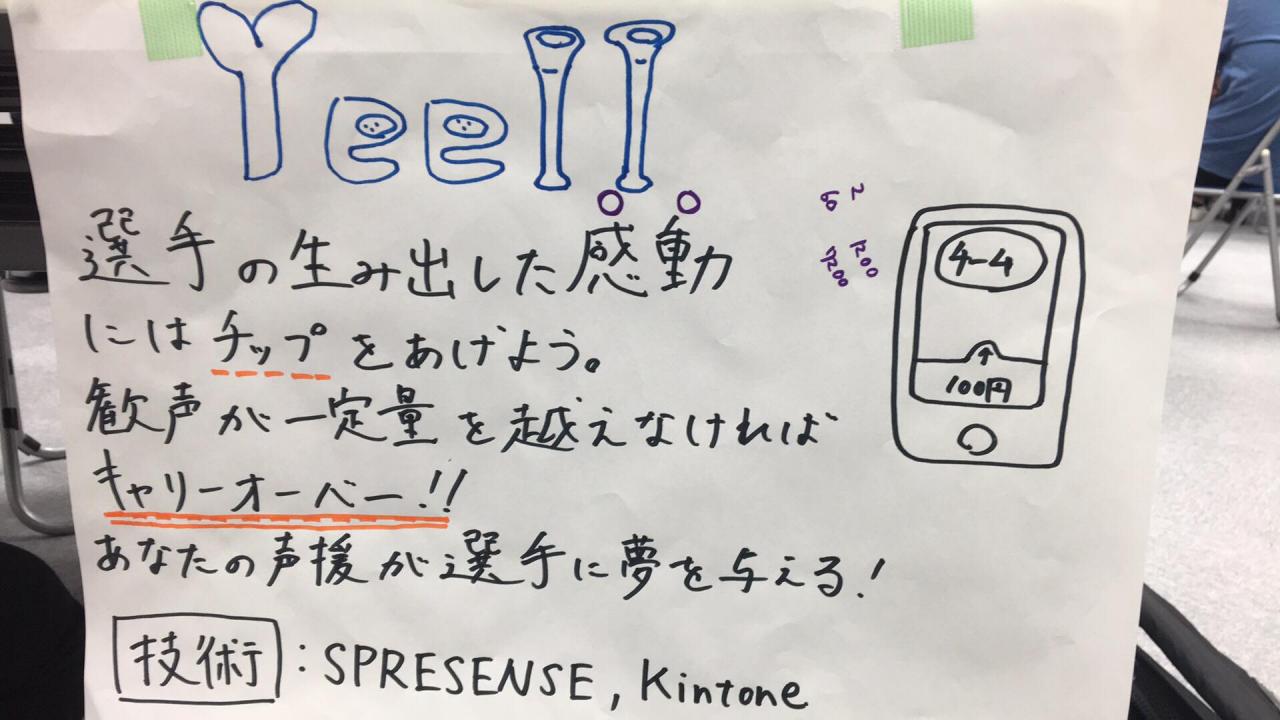 Yell
選手の生み出した感動
にはチップをあげよう。
歓声が一定量を越えなければ
キャリーオーバー!!
あなたの声援が選手に夢を与える!
技術:SPRESENSE, Kintone
4-4
100円